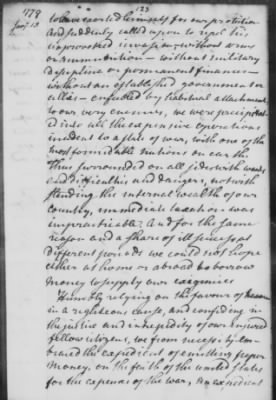 1779
Jany. 13
(23)
to have exerted himself for our protection
And suddenly called upon to repel his
unprovoked invasion, without arms
or ammunition — without military
discipline or permanent finances —
without an established government or
allies — enfeebled by habitual attachments
to our very enemies, we were precipitated
into all the expensive operations
incident to a state of war, with one of the
most formidable nations on earth.
Thus surrounded on all sides with wants
and difficulties and dangers, notwith
standing the internal wealth of our
country, immediate taxation was
impracticable; And for the same
reason and a share of ill success at
different periods we could not hope
either at home or abroad to borrow
money to supply our exigencies
Humbly relying on the favour of heaven
in a righteous cause, and confiding in
the justice and intrepidity of our injured
fellow citizens, we from necessity em
braced the expedient of emitting paper
money, on the faith of the united states
for the expences of the war, An expedient